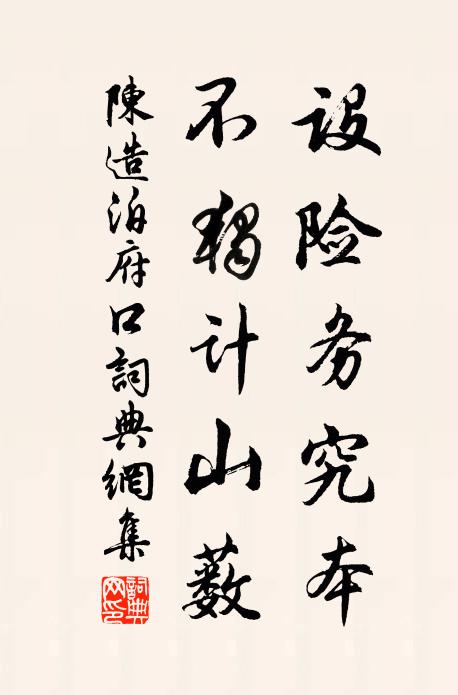 设险务究本
不独计山薮
陳造泊府口詞典網集
詞典网印